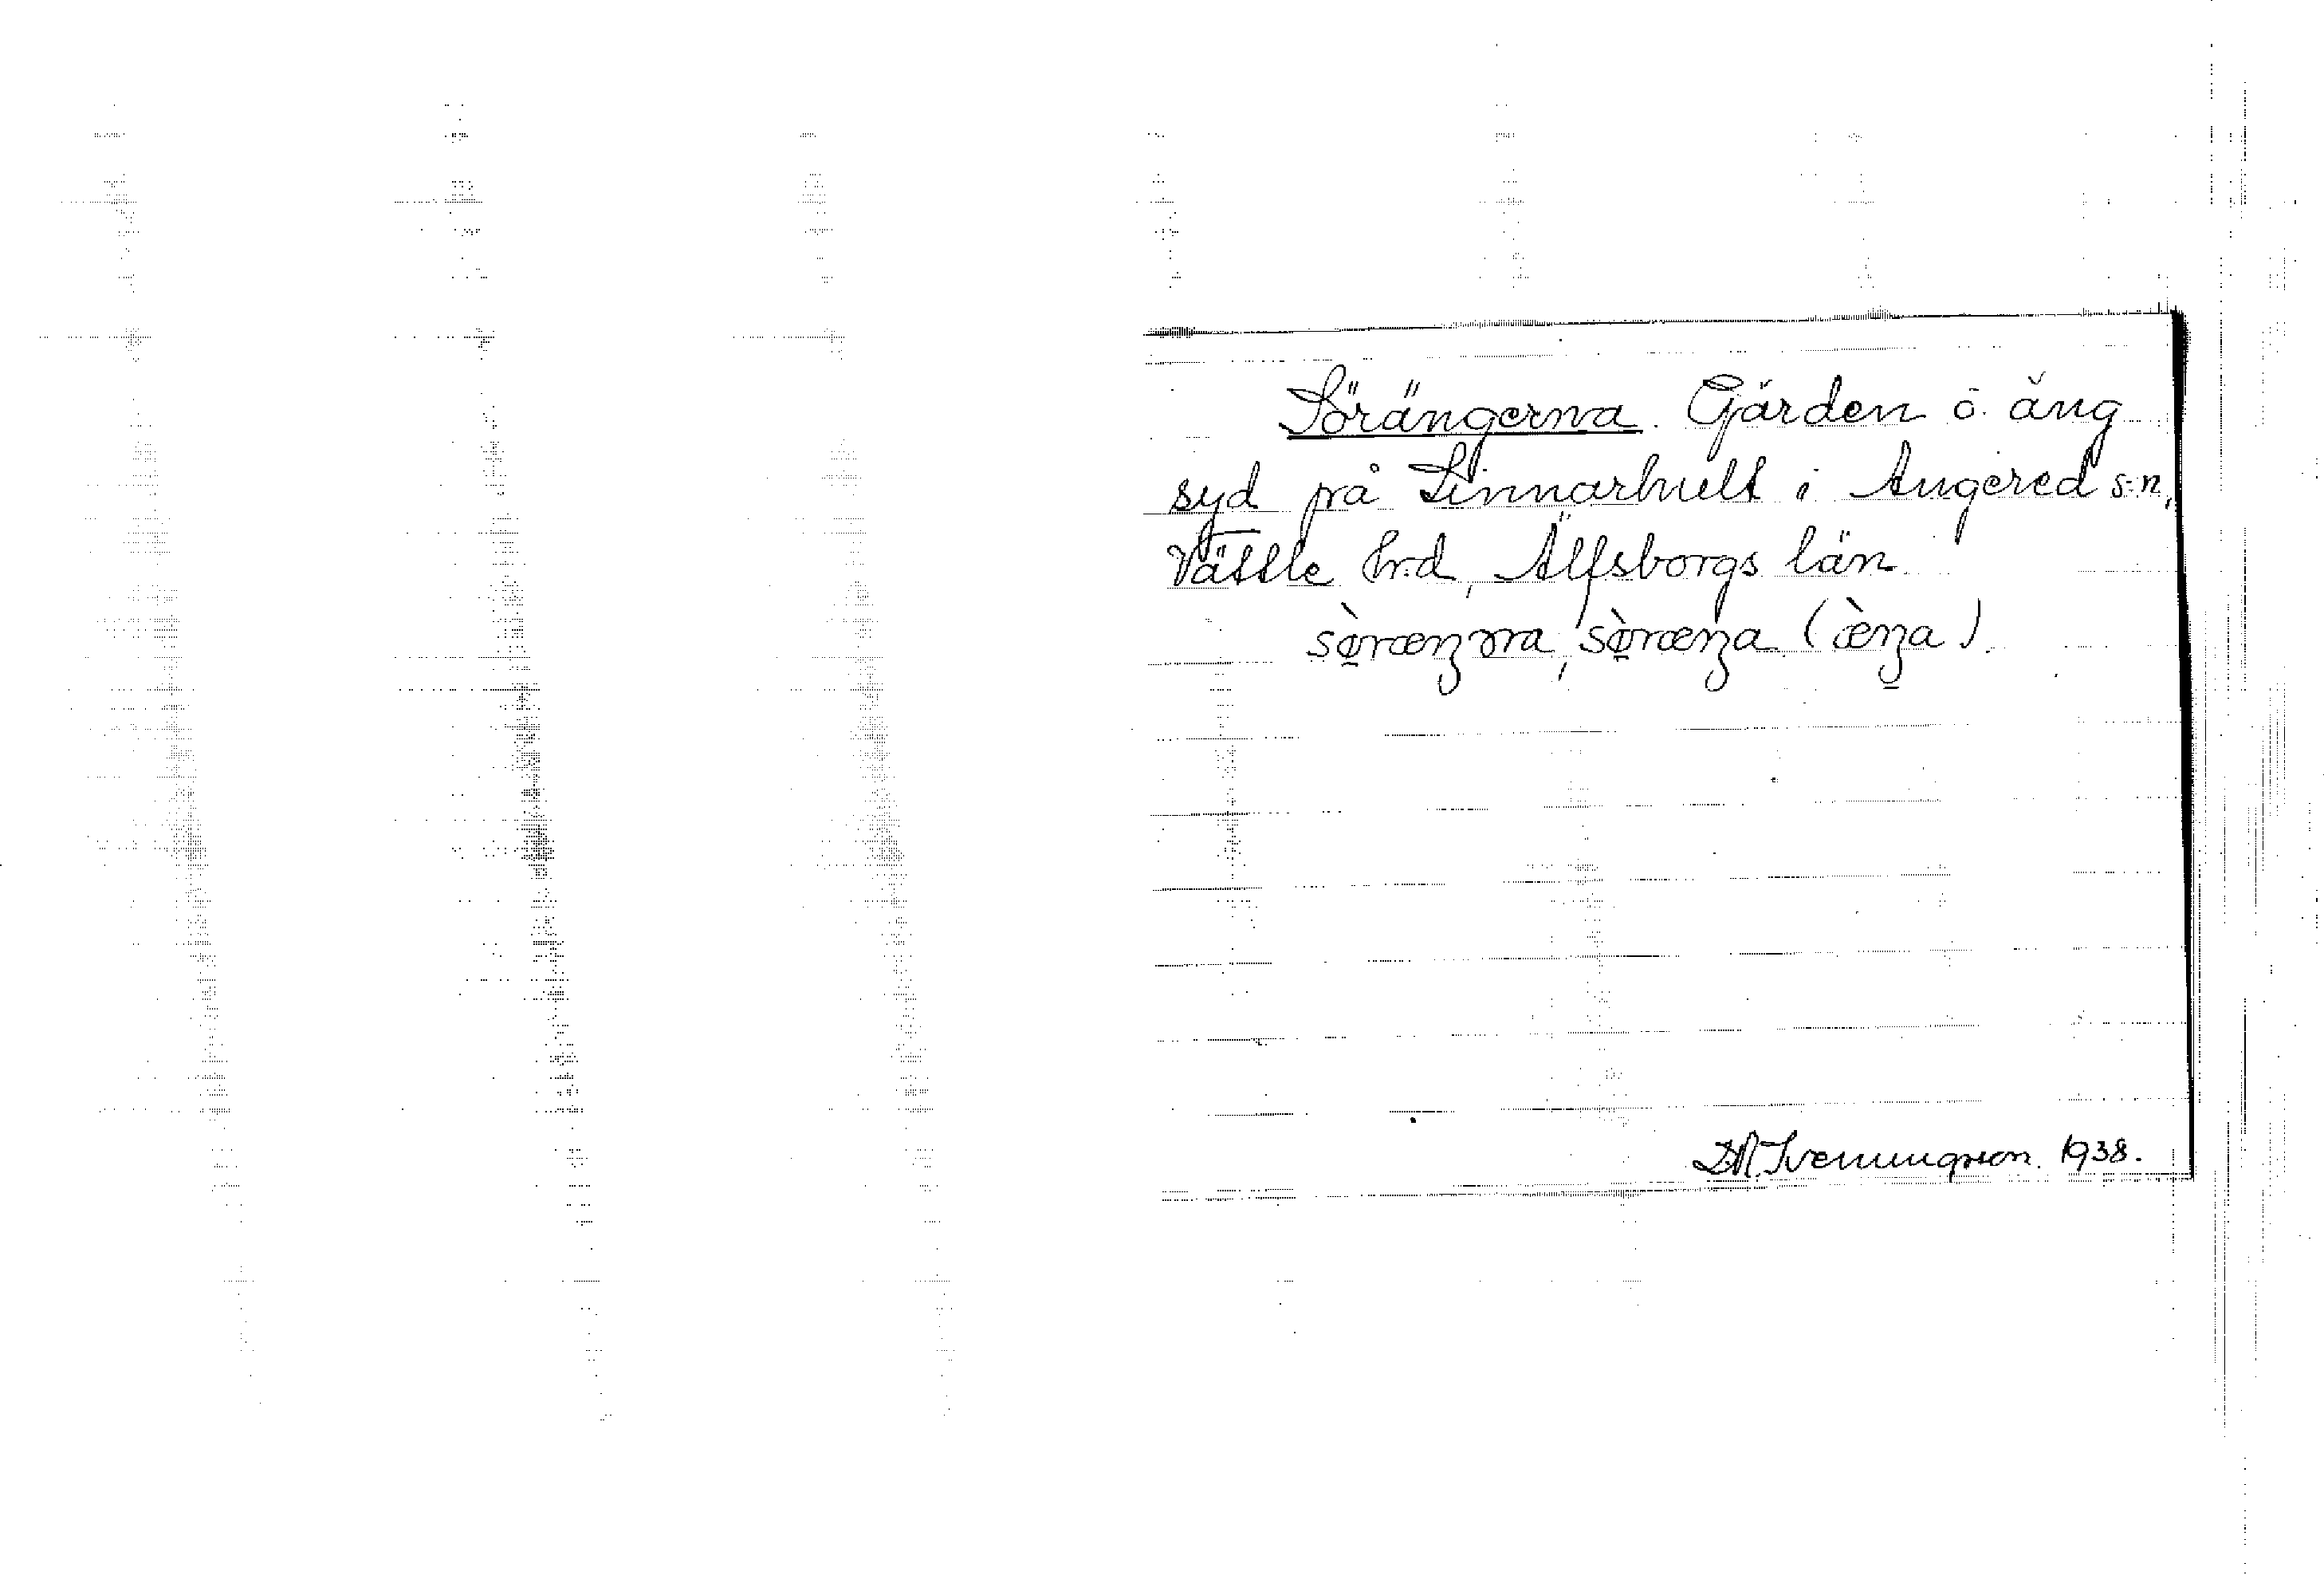 Sörängerna. Gärden o. äng
syd på Linnarhult i Angered s:n,
Vättle hr:d, Älfsborgs län
sø̀ræŋɔra, sø̀ræŋa (æ̀ŋa).
1938.